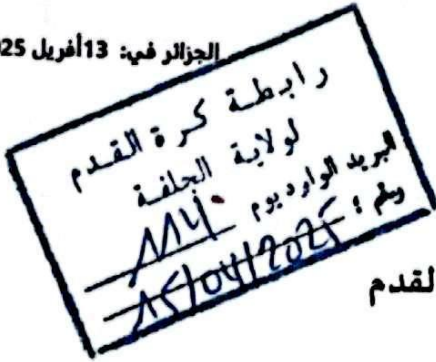 الجزائر في: 13أفريل 25
رابطة كرة القدم
لولاية الجلفة
البريد الوارد يوم
114
رقم :
15/04/2025
لقدم